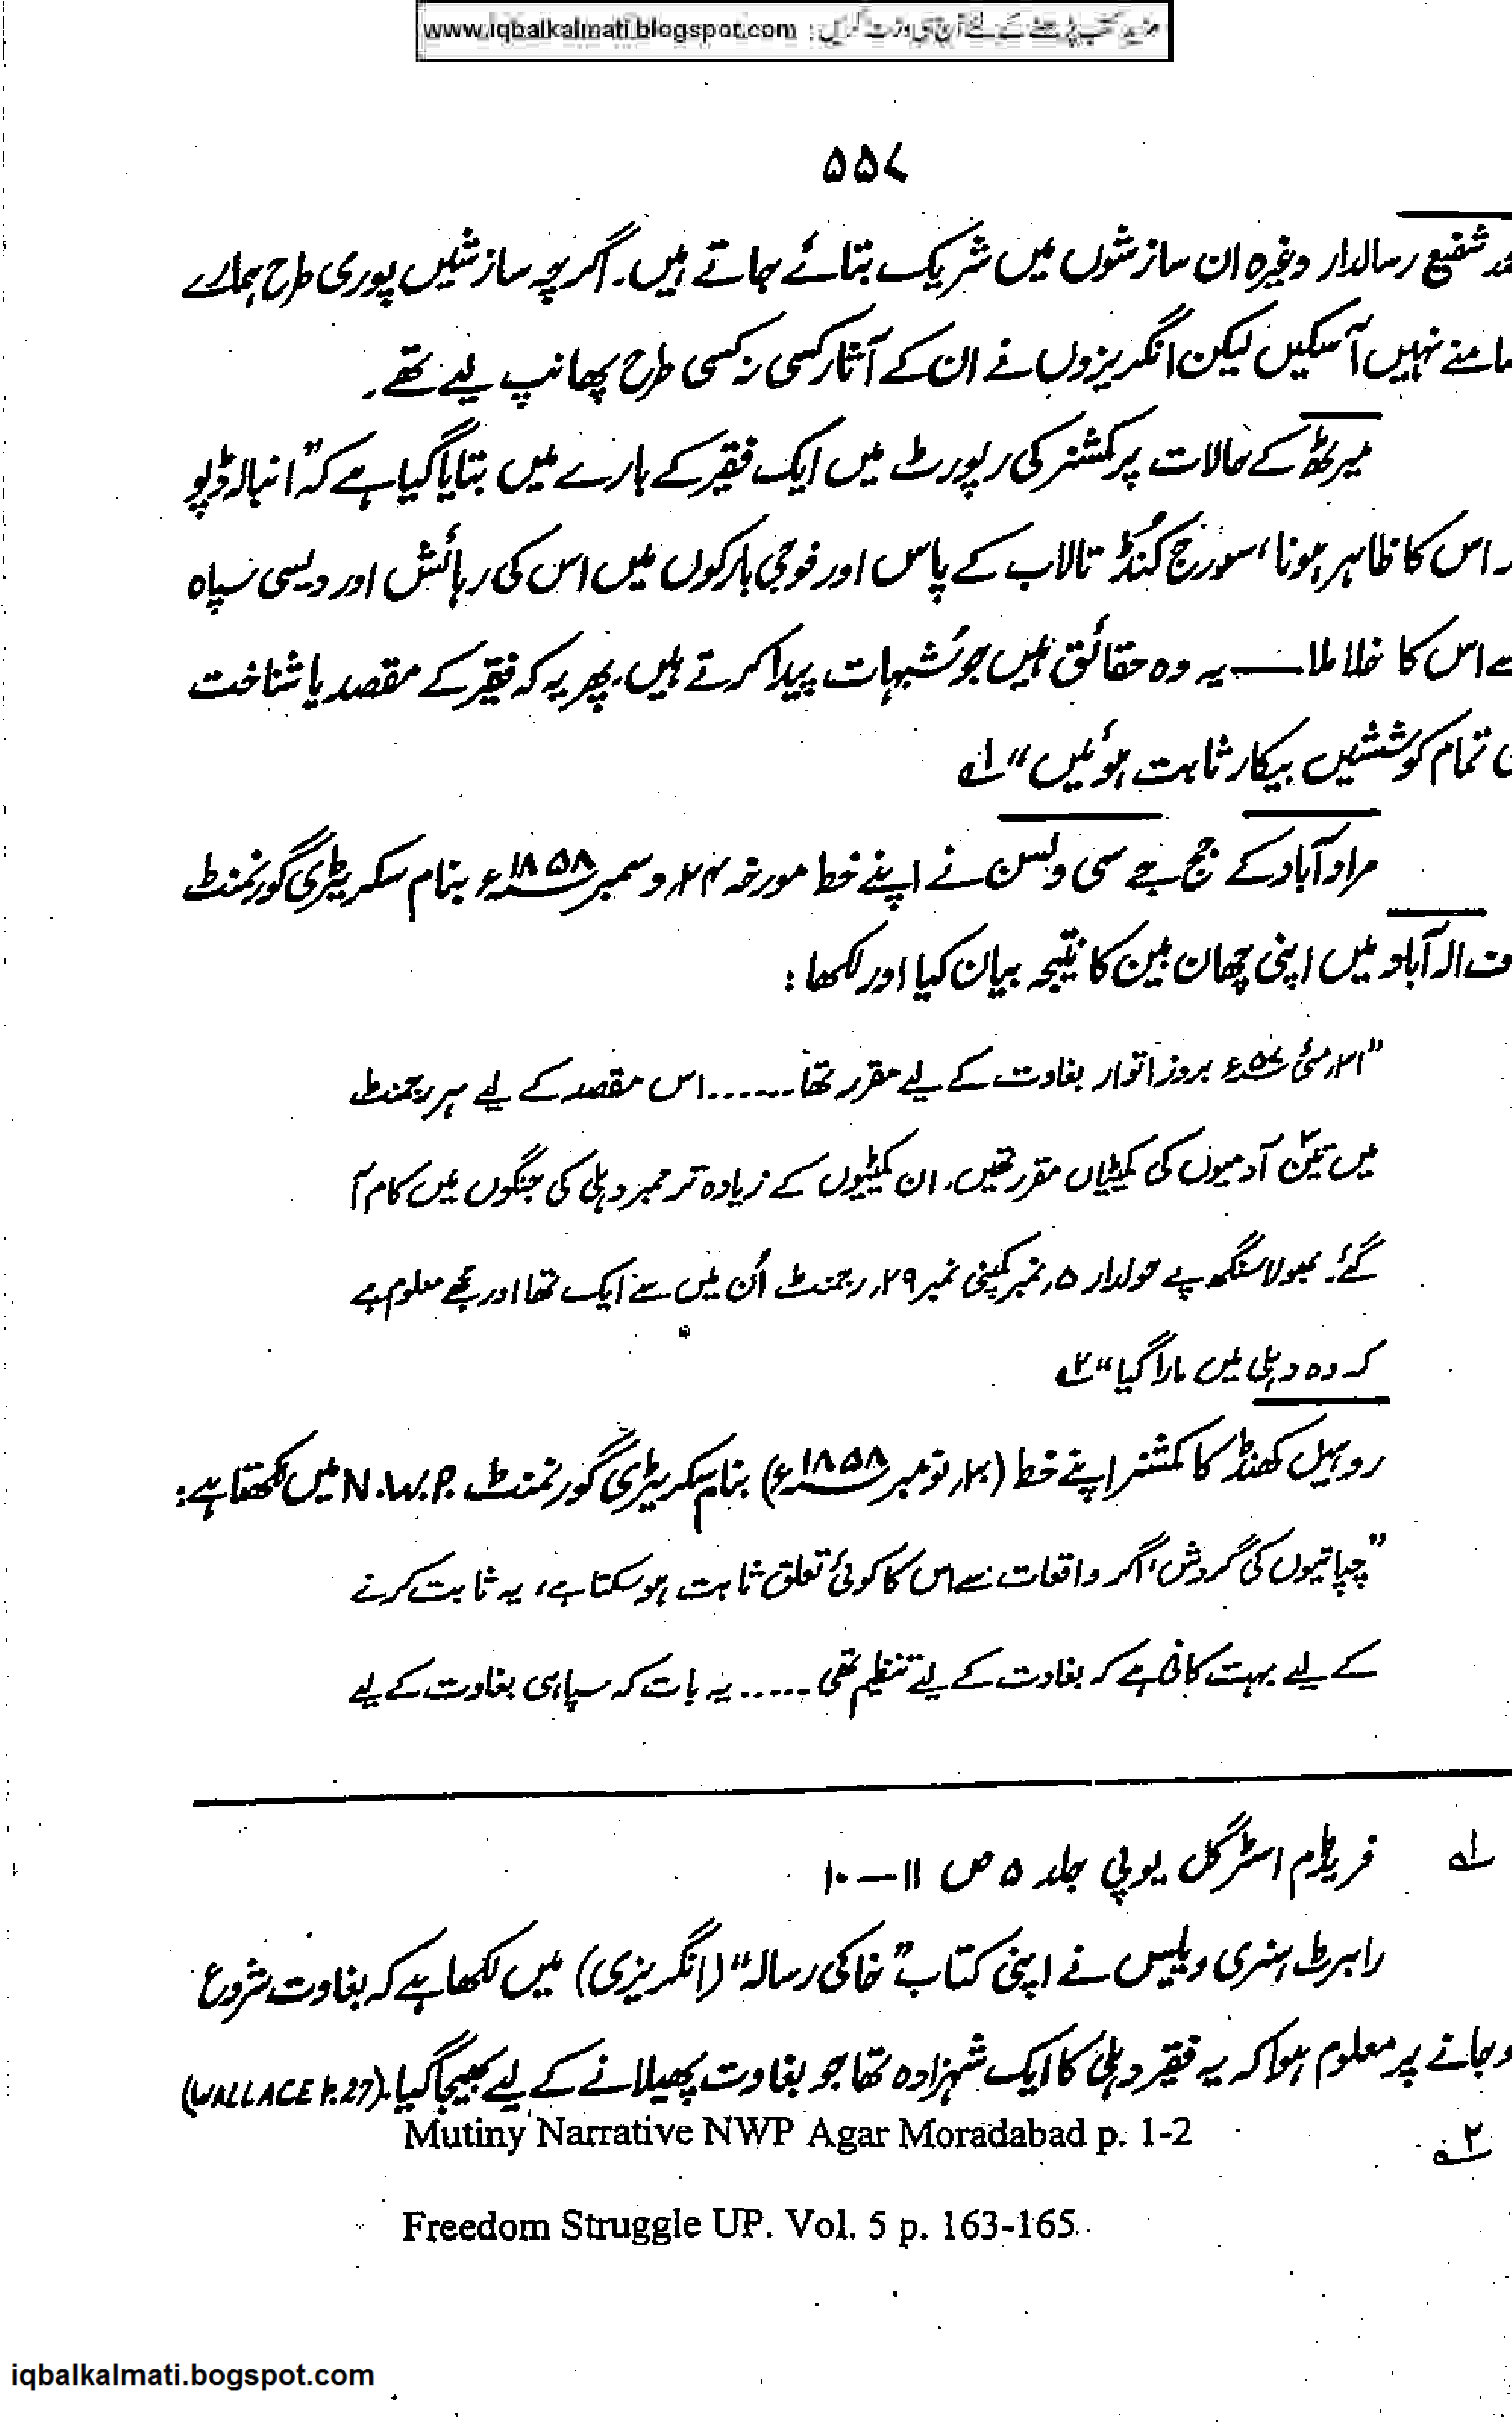 مزید کتب پڑھنے کے لئے آج ہی وزٹ کریں : www.iqbalkalmati.blogspot.com
۵۵۷
شفیع رسالدار وغیرہ ان سازشوں میں شریک بتائے جاتے ہیں۔ اگرچہ سازشیں پوری طرح ہمارے
سامنے نہیں آسکیں لیکن انگریزوں نے ان کے آثار کسی نہ کسی طرح بھانپ لیے تھے۔
میرٹھ کے حالات پر کمشنر کی رپورٹ میں ایک فقیر کے بارے میں بتایا گیا ہے کہ "انبالہ ڈپو
اس کا ظاہر ہونا، سورج کُنڈ تالاب کے پاس اور فوجی بارکوں میں اس کی رہائش اور دیسی سپاہ
سے اس کا خلا ملا — یہ وہ حقائق ہیں جو شبہات پیدا کرتے ہیں، پھر یہ کہ فقیر کے مقصد یا شناخت
کی تمام کوششیں بیکار ثابت ہوئیں" ۱؎
مراد آباد کے جج جے سی ولسن نے اپنے خط مورخہ ۲۴؍ دسمبر ۱۸۵۸ء بنام سکریٹری گورنمنٹ
ف الہ آباد میں اپنی چھان بین کا نتیجہ بیان کیا اور لکھا :
"۳۱؍ مئی ۵۷ء بروز اتوار بغاوت کے لیے مقرر تھا....... اس مقصد کے لیے ہر رجمنٹ
میں تین ۳ آدمیوں کی کمیٹیاں مقرر تھیں۔ ان کمیٹیوں کے زیادہ تر ممبر دہلی کی جنگوں میں کام آ
گئے۔ بھولا سنگھ پے حولدار ۵؍ نمبر کمپنی نمبر ۲۹؍ رجمنٹ اُن میں سے ایک تھا اور مجھے معلوم ہے
کہ وہ دہلی میں مارا گیا" ۲؎
روہیل کھنڈ کا کمشنر اپنے خط (۲۰؍ نومبر ۱۸۵۸ء) بنام سکریٹری گورنمنٹ N.W.P. میں لکھتا ہے :
"چپاتیوں کی گردش، اگر واقعات سے اس کا کوئی تعلق ثابت ہو سکتا ہے، یہ ثابت کرنے
کے لیے بہت کافی ہے کہ بغاوت کے لیے تنظیم تھی ...... یہ بات کہ سپاہی بغاوت کے لیے
۱؎ فریڈم اسٹرگل یوپی جلد ۵ ص ۱۱—۱۰
رابرٹ ہنری ویلیس نے اپنی کتاب "خاکی رسالہ" (انگریزی) میں لکھا ہے کہ بغاوت شروع
ہو جانے پر معلوم ہوا کہ یہ فقیر دہلی کا ایک شہزادہ تھا جو بغاوت پھیلانے کے لیے بھیجا گیا۔ (WALLACE P. 27)
۲؎ Mutiny Narrative NWP Agar Moradabad p. 1-2
Freedom Struggle UP. Vol. 5 p. 163-165
iqbalkalmati.bogspot.com